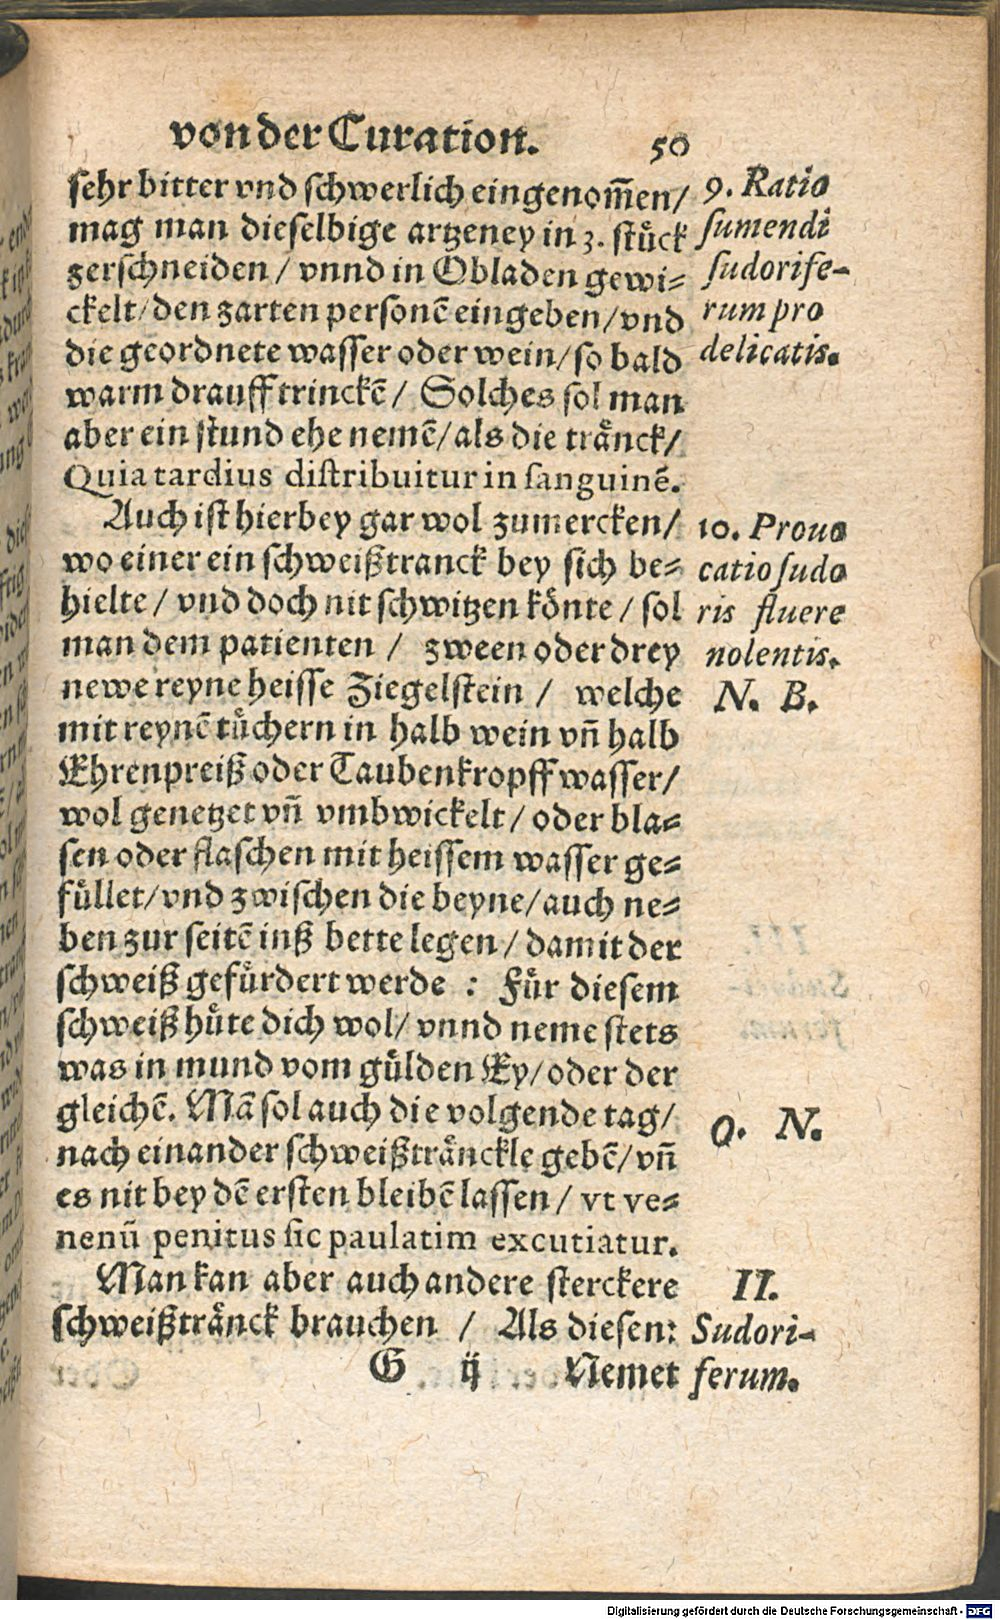 von der Curation. 50
sehr bitter vnd schwerlich eingenom̃en/
mag man dieselbige artzeney in 3. stuͤck
zerschneiden / vnnd in Obladen gewi⸗
ckelt/den zarten personē eingeben/vnd
die geordnete wasser oder wein/so bald
warm drauff trinckē / Solches sol man
aber ein stund ehe nemē/als die traͤnck/
Quia tardius distribuitur in sanguinē.
Auch ist hierbey gar wol zumercken/
wo einer ein schweißtranck bey sich be⸗
hielte / vnd doch nit schwitzen koͤnte / sol
man dem patienten / zween oder drey
newe reyne heisse Ziegelstein / welche
mit reynē tuͤchern in halb wein vñ halb
Ehrenpreiß oder Taubenkropff wasser/
wol genetzet vñ vmbwickelt / oder bla⸗
sen oder flaschen mit heissem wasser ge⸗
fuͤllet/vnd zwischen die beyne/auch ne⸗
ben zur seitē inß bette legen / damit der
schweiß gefuͤrdert werde : Fuͤr diesem
schweiß huͤte dich wol/ vnnd neme stets
was in mund vom guͤlden Ey/oder der
gleichē. Mā sol auch die volgende tag/
nach einander schweißtraͤnckle gebē/vñ
es nit bey dē ersten bleibē lassen / vt ve⸗
nenū penitus sic paulatim excutiatur.
Man kan aber auch andere sterckere
schweißtraͤnck brauchen / Als diesen:
G ij Nemet
9. Ratio
sumendi
sudorife-
rum pro
delicatis.
10. Prouo
catio sudo
ris fluere
nolentis.
N. B.
Q. N.
II.
Sudori-
ferum.
Digitalisierung gefördert durch die Deutsche Forschungsgemeinschaft - DFG